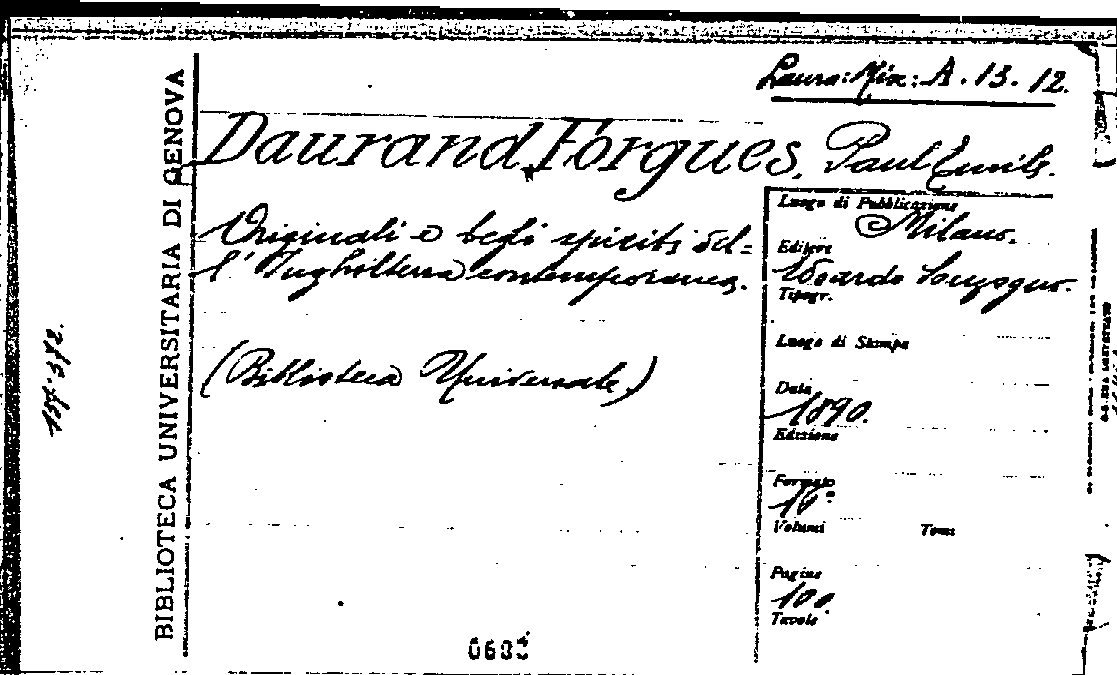 Laura: Mix: A. 13. 12.
BIBLIOTECA UNIVERSITARIA DI GENOVA
Daurand Forgues, Paul Emile.
Originali e begli spiriti del=
l'Inghilterra contemporanea.
(Biblioteca Universale)
Luogo di Pubblicazione
Milano.
Editore
Edoardo Sonzogno.
Tipogr.
Luogo di Stampa
Data
1890.
Edizione
Formato
16°
Volumi Tomi
Pagine
100.
Tavole